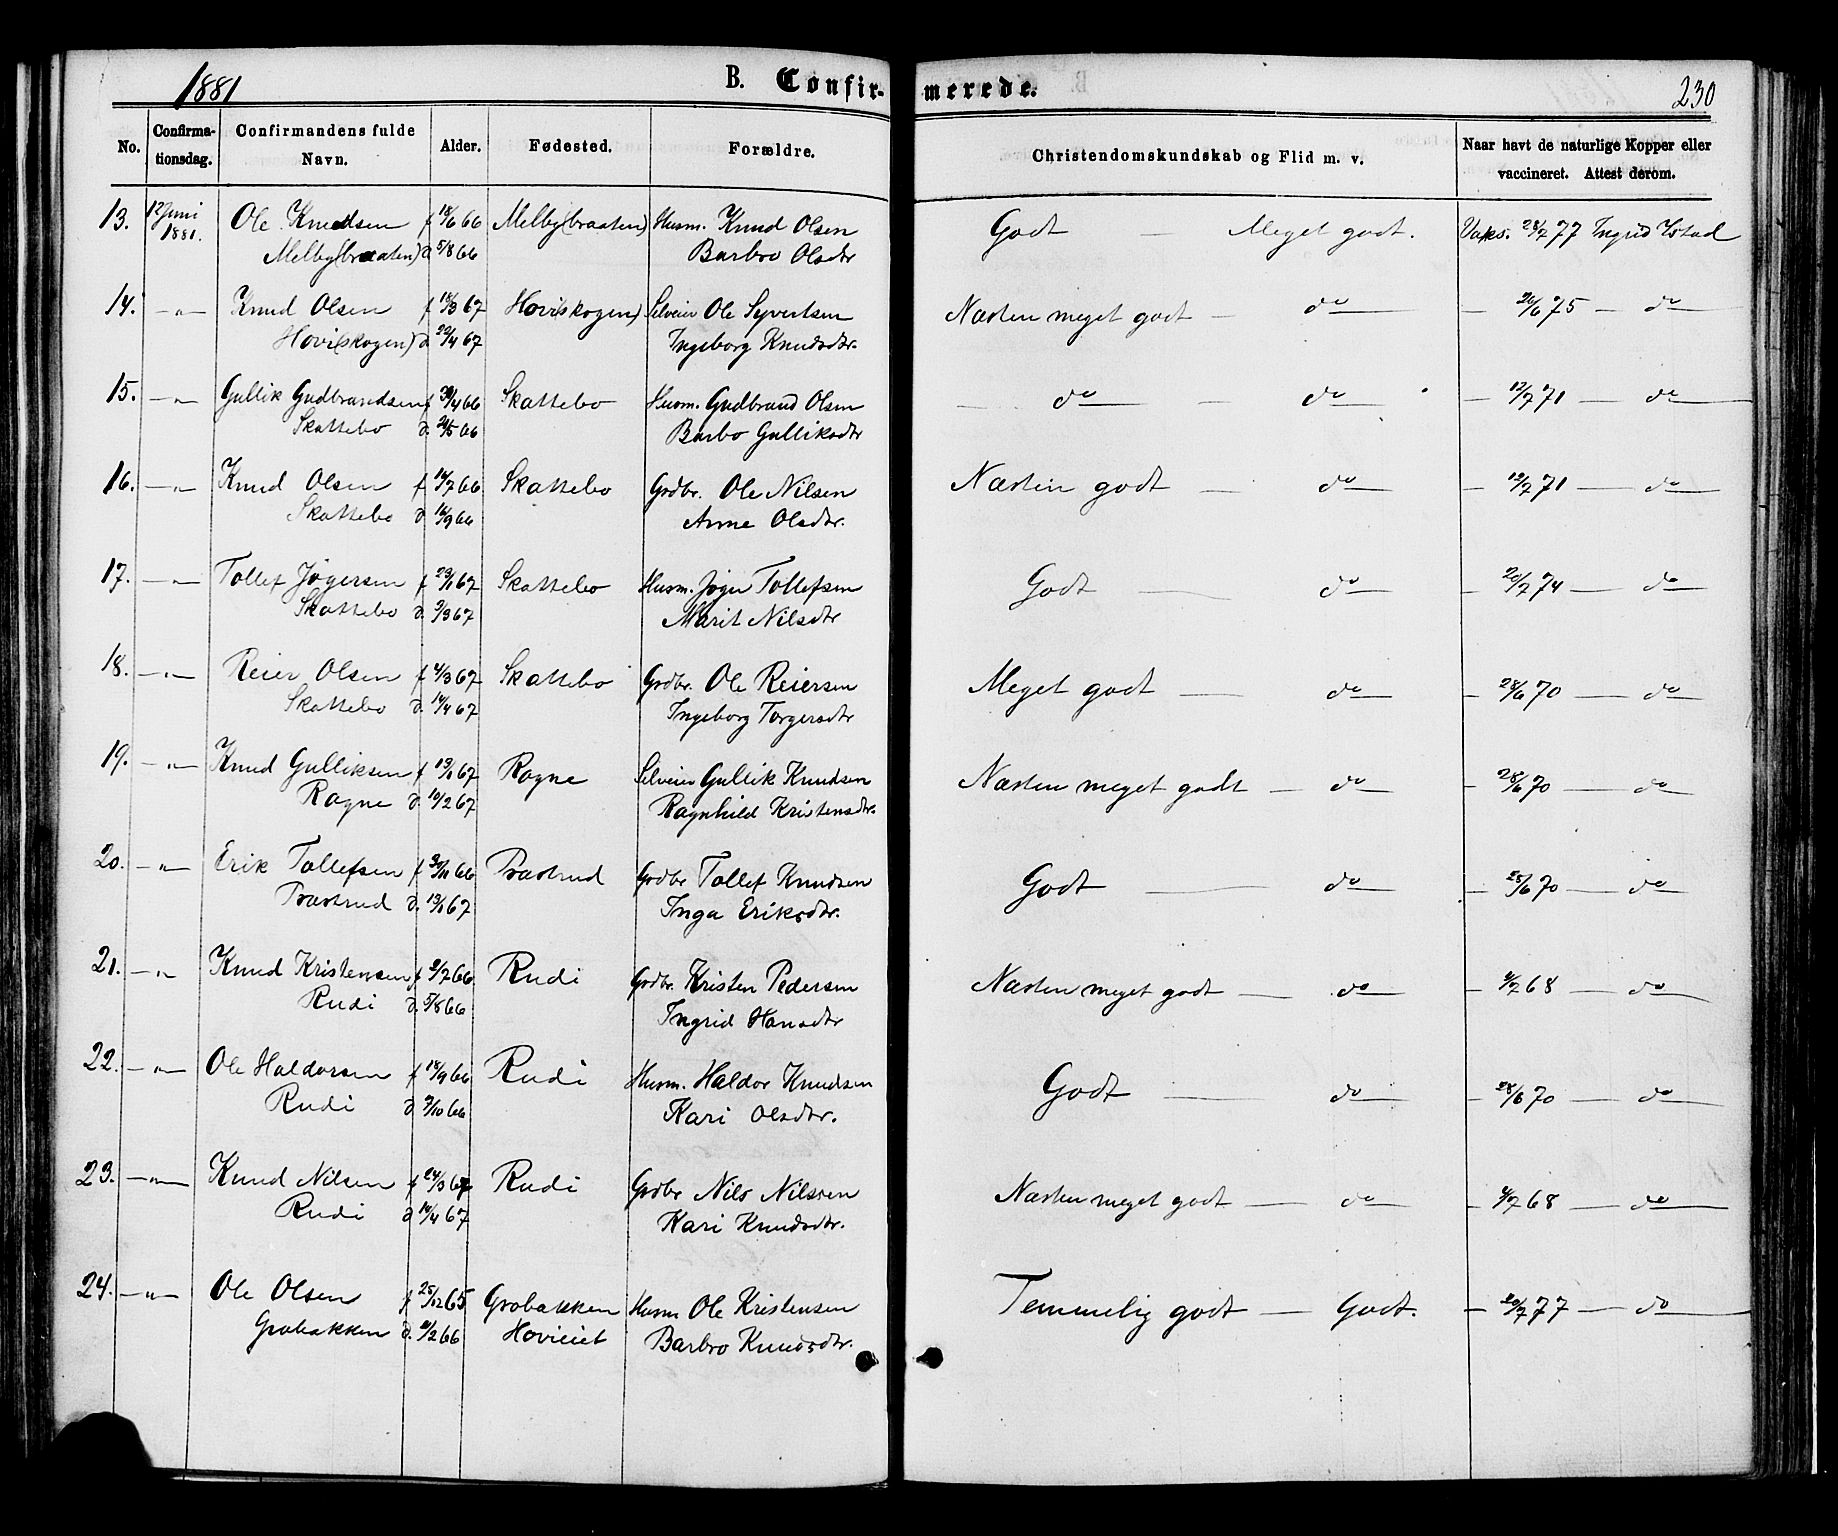 1881 B. Confirmerede. 230
No. Confirmationsdag. Confirmandens fulde Navn. Alder. Fødested. Forældre. Christendomskundskab og Flid m. v. Naar havt de naturlige Kopper eller vaccineret. Attest derom.
13. 12 Juni Ole Knudsen f 18/6 66 Melby(braaten) Husm. Knud Olsen Godt — Meget godt. Vaks. 28/7 77 Ingrid Ystad
1881. Melby(braaten) d 5/8 66 Barbro Olsdtr
14. —"— Knud Olsen f 18/3 67 Hovi(skogen) Selveier Ole Syvertsen Næsten meget godt — do — 26/6 75 — do
Hovi(skogen) d 22/4 67 Ingeborg Knudsdtr.
15. —"— Gullik Gudbrandsen f 29/4 66 Skattebo Husm. Gudbrand Olsen — do — do — 12/7 71 — do
Skattebo d. 24/5 66 Barbo Galliksdtr
16. —"— Knud Olsen f 14/7 66 Skattebo Grdbr. Ole Nilsen Næsten godt — do — 19/7 71 — do
Skattebo d 16/9 66 Anne Olsdtr.
17. —"— Tollef Jøgersen f 29/1 67 Skattebo Husm. Jøger Tollefsen Godt — do — 20/7 74 — do
Skattebo d. 3/3 67 Marit Nilsdtr
18. —"— Reier Olsen f 4/3 67 Skattebo Grdbr. Ole Reiersen Meget godt — do — 28/6 70 — do
Skattebo d. 14/4 67 Ingeborg Torgersdtr
19. —"— Knud Gulliksen f 13/1 67 Rogne Selveier Gullik Knudsen Næsten meget godt — do — 28/6 70 — do
Rogne d. 10/2 67 Ragnhild Kristensdtr.
20. —"— Erik Tollefsen f 30/11 66 Præstrud Grdbr Tollef Knudsen Godt — do — 28/6 70 — do
Præstrud d. 13/1 67 Inga Eriksdtr.
21. —"— Knud Kristensen f 2/7 66 Rudi Grdbr. Kristen Pedersen Næsten meget godt — do — 4/7 68 — do
Rudi d. 5/8 66 Ingrid Hansdtr
22. —"— Ole Haldorsen f 18/9 66 Rudi Husm. Haldor Knudsen Godt — do — 28/6 70 — do
Rudi d 7/10 66 Kari Olsdtr.
23. —"— Knud Nilsen f 24/3 67 Rudi Grdbr Nils Nilssen Næsten meget godt — do — 4/7 68 — do
Rudi d 14/4 67 Kari Knudsdtr.
24. —"— Ole Olsen f 25/12 65 Grobakken Husm Ole Kristensen Temmelig godt — Godt. — 20/7 77 — do
Grobakken d. 2/2 66 Hovieiet Barbro Knudsdtr.